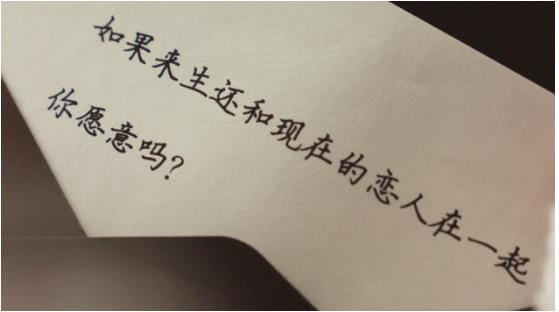 如果来生还和现在的恋人在一起
你愿意吗?